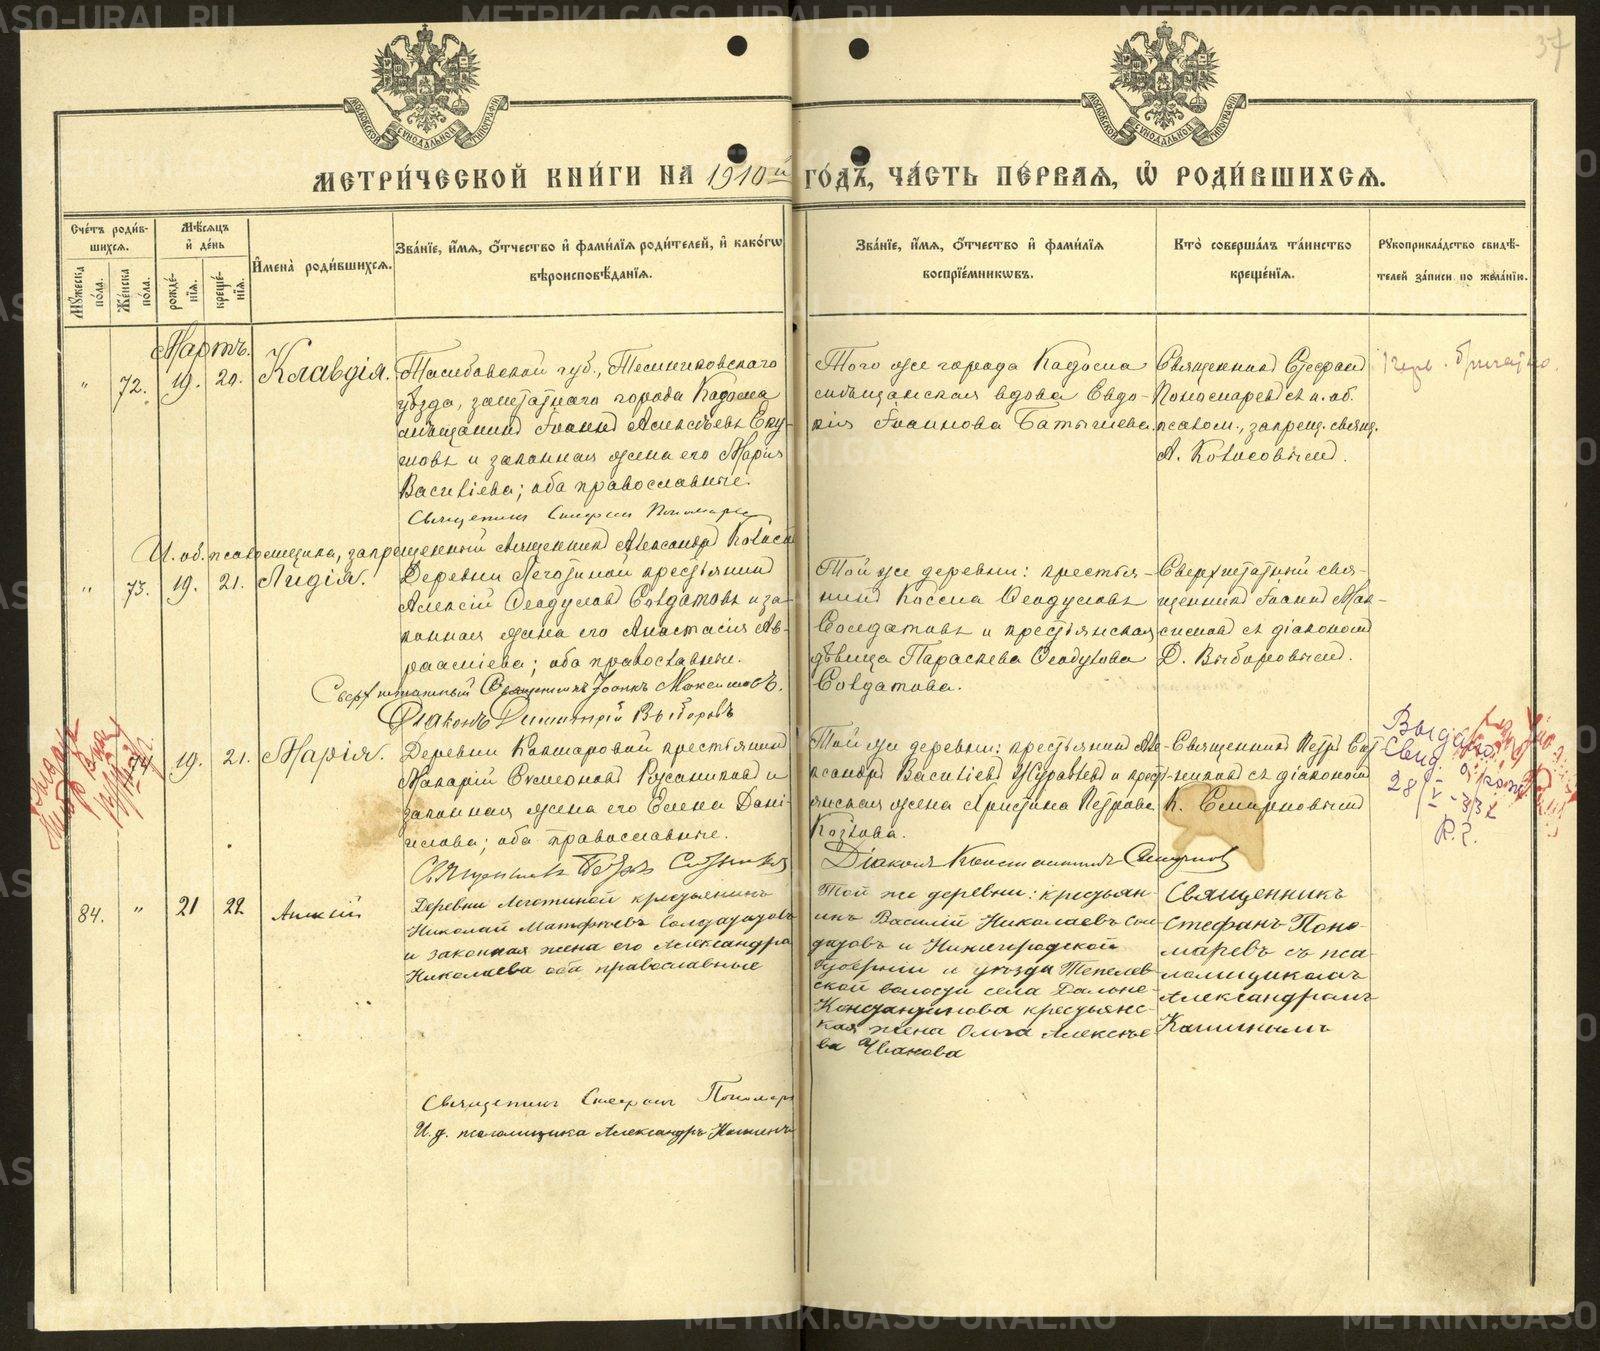 37
МОСКОВСКОЙ СѴНОДАЛЬНОЙ ТИПОГРАФІИ
МОСКОВСКОЙ СѴНОДАЛЬНОЙ ТИПОГРАФІИ
МЕТРИ́ЧЕСКОЙ КНИ́ГИ НА 1910й ГО́ДЪ, ЧА́СТЬ ПЕ́РВАѦ, Ѡ РОДИ́ВШИХСѦ.
Сче́тъ роди́в-
шихсѧ.
Мꙋ́жеска по́ла.
Же́нска по́ла.
Мѣ́сѧцъ
и҆ де́нь
рожде́-
нїѧ.
креще́-
нїѧ.
И҆мена̀ роди́вшихсѧ.
Зва́нїе, и҆́мѧ, ѻ҆́тчество и҆ фами́лїѧ роди́телей, и҆ како́гѡ
вѣроисповѣ́данїѧ.
Зва́нїе, и҆́мѧ, ѻ҆́тчество и҆ фами́лїѧ
воспрїе́мникѡвъ.
Кто̀ соверша́лъ та́инство
креще́нїѧ.
Рꙋкоприкла́дство свидѣ́-
телей за́писи по жела́нїю.
Мартъ.
" 72. 19. 20. Клавдія.
Тамбовской губ., Темниковскаго
уѣзда, заштатнаго города Кадома
мѣщанинъ Іоаннъ Алексѣевъ
и законная жена его Марія
Василіева; оба православные.
Священникъ Стефанъ Пономарев
Того же города Кадома
мѣщанская вдова Евдо-
кія Іоаннова Батышева
Священникъ Стефанъ
Пономаревъ съ и. об.
псалом., запрещ. свящ.
А.
И. об. псаломщика, запрещенный священникъ Александръ
" 73. 19. 21. Лидія.
Деревни Леготиной крестьянинъ
Алексій Ѳеодуловъ Солдатовъ и за-
конная жена его Анастасія Ав-
рааміева; оба православные.
Сверхштатный Священникъ Іоаннъ Максимовъ.
Діаконъ Димитрій Выборовъ
Той же деревни: крестья-
нинъ Косма Ѳеодуловъ
Солдатовъ и крестьянская
дѣвица Параскева Ѳеодулова
Солдатова.
Сверхштатный свя-
щенникъ Іоаннъ Мак-
симовъ съ діакономъ
Д. Выборовымъ.
74 19. 21. Марія.
Деревни Кокшаровой крестьянинъ
Макарій Симеоновъ Русаниковъ и
законная жена его Елена Дані-
илова; оба православные.
Священникъ Петръ
Той же деревни: крестьянинъ Але-
ксандръ Василіевъ Журавлевъ и крест-
янская жена Христина Петрова
Козлова.
Діаконъ Константинъ Смирнов
Священникъ Петръ
съ діакономъ
К. Смирновымъ
Выдано
Свид. о рожд
28/V-
84. " 21 22 Алексій
Деревни Леготиной крестьянинъ
Николай Матѳѣевъ Солдатовъ
и законная жена его Александра
Николаева оба православные
Той же деревни: крестьян-
инъ Василій Николаевъ Сол-
датовъ и Нижегородской
Губерніи и уѣзда Тепелев-
ской волости села Дальне-
Константинова крестьянс-
кая жена Ольга Алексѣе-
ва Иванова
Священникъ
Стефанъ Поно-
маревъ съ пса-
ломщикомъ
Александромъ
Кашинымъ
Священникъ Стефанъ Пономар
И. д. псаломщика Александръ Кашинъ
METRIKI.GASO-URAL.RU